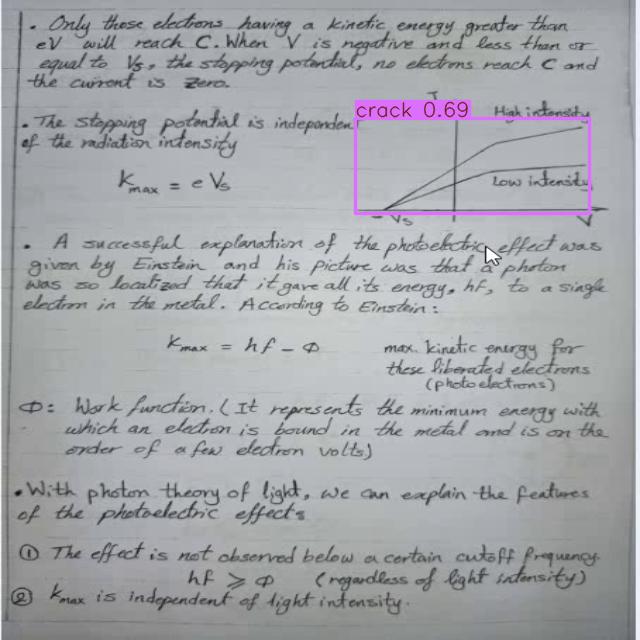 • Only those electrons having a kinetic energy greater than
eV will reach C. When V is negative and less than or
equal to Vs, the stopping potential, no electrons reach C and
the current is zero.
I
crack 0.69
High intensity
• The stopping potential is independen
of the radiation intensity
Low intensity
Kmax = e Vs
- Vs
V
• A successful explanation of the photoelectric effect was
given by Einstein and his picture was that a photon
was so localized that it gave all its energy, hf, to a single
electron in the metal. According to Einstein:
Kmax = hf - Φ
max. kinetic energy for
these liberated electrons
(photoelectrons)
Φ: Work function. (It represents the minimum energy with
which an electron is bound in the metal and is on the
order of a few electron volts)
• With photon theory of light, we can explain the features
of the photoelectric effects
① The effect is not observed below a certain cutoff frequency.
hf ⩾ Φ (regardless of light intensity)
② Kmax is independent of light intensity.